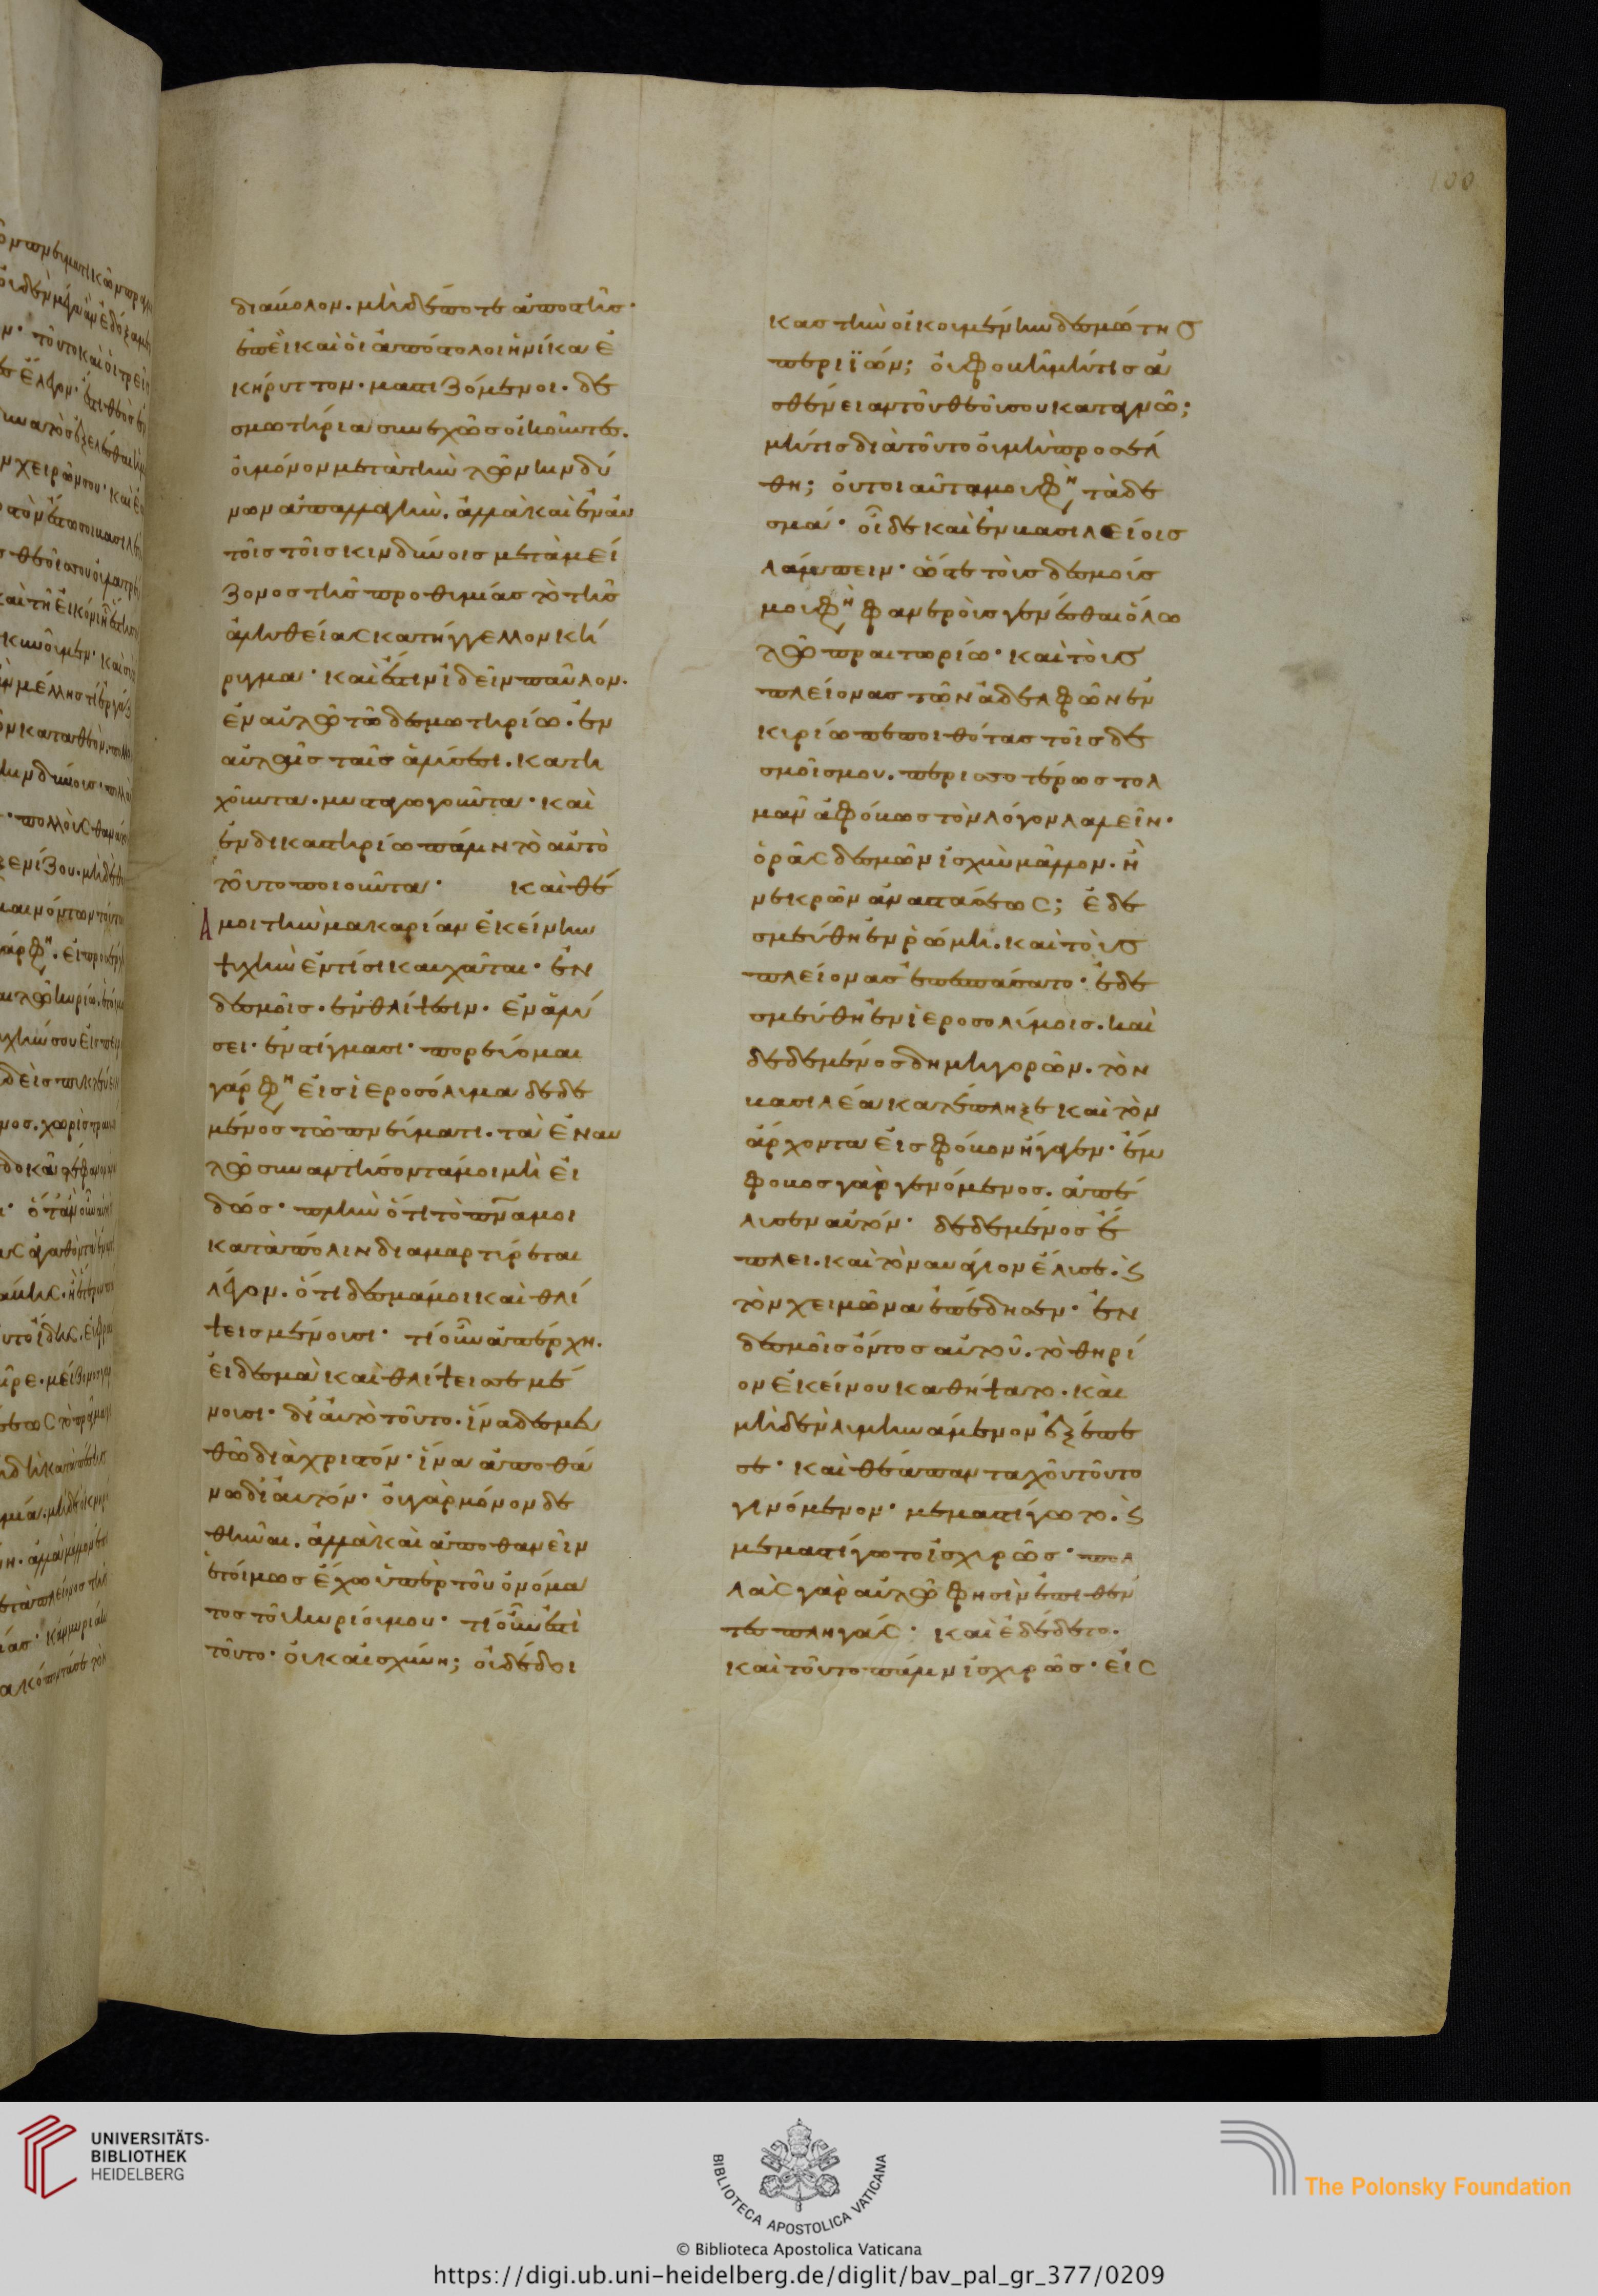 100
διάβολον. μηδέποτε ἀποστῆς·
ἐπεὶ καὶ οἱ ἀπόστολοι ἡνίκα ἐ
κήρυττον. μαστιζόμενοι. δε
σμωτήρια συνεχῶς οἰκοῦντες.
οὐ μόνον μετὰ τὴν τῶν κινδύ
νων ἀπαλλαγὴν. ἀλλὰ καὶ ἐν αὐ
τοῖς τοῖς κινδύνοις μετὰ μεί
ζονος τῆς προθυμίας τὸ τῆς
ἀληθείας κατήγγελλον κή
ρυγμα· καὶ ἔστιν ἰδεῖν παῦλον.
ἐν αὐτῷ τῶ δεσμωτηρίω. ἐν
αὐταῖς ταῖς ἁλύσεσι. κατη
χοῦντα. μυσταγωγοῦντα· καὶ
ἐν δικαστηρίω πάλιν τὸ αὐτὸ
τοῦτο ποιοῦντα· καὶ θέ
α μοι τὴν μακαρίαν ἐκείνην
ψυχὴν ἐν τίσι καυχᾶται· ἐν
δεσμοῖς. ἐν θλίψεσιν. ἐν ἁλύ
σει. ἐν στίγμασι· πορεύομαι
γάρ φη εἰς ἱεροσόλυμα δεδε
μένος τῶ πνεύματι. τὰ ἐν αυ
τῶ συναντήσοντά μοι μὴ εἰ
δώς· πλὴν ὅτι τὸ πνα μοι
κατὰ πόλιν διαμαρτύρεται
λέγον. ὅτι δεσμά μοι καὶ θλί
ψεις μένουσι· τί οὖν ἀπέρχη.
εἰ δεσμὰ καὶ θλίψεις σε μέ
νουσι· δι' αὐτὸ τοῦτο. ἵνα δεσμευ
θῶ διὰ χριστόν· ἵνα ἀποθά
νω δι' αὐτόν· οὐ γὰρ μόνον δε
θῆναι. ἀλλὰ καὶ ἀποθανεῖν
ἑτοίμως ἔχω ὑπὲρ τοῦ ὀνόμα
τος τοῦ κυρίου μου· τί οὖν ἐπὶ
τοῦτο· οὐκ αἰσχύνη; οὐ δέδοι
κας τὴν οἰκουμένην δεσμώτης
περιϊών; οὐ φοβῆ μή τις ἀ
σθένειαν τοῦ θεοῦ σου καταγνῶ;
μή τις διὰ τοῦτο οὐ μὴ προσέλ
θη; οὐ τοιαῦτά μου φη τὰ δε
σμά· οἶδε καὶ ἐν βασιλείοις
λάμπειν· ὥστε τοὺς δεσμούς
μου φη φανεροὺς γενέσθαι ὅλω
τῶ πραιτωρίω· καὶ τοὺς
πλείονας τῶν ἀδελφῶν ἐν
κυρίω πεποιθότας τοῖς δε
σμοῖς μου. περισσοτέρως τολ
μᾶν ἀφόβως τὸν λόγον λαλεῖν·
ὁρᾶς δεσμῶν ἰσχὺν μᾶλλον. ἢ
νεκρῶν ἀναστάσεως; ἐδε
σμεύθη ἐν ῥώμη. καὶ τοὺς
πλείονας ἐπεσπάσατο· ἐδε
σμεύθη ἐν ἱεροσολύμοις. καὶ
δεδεμένος δημηγορῶν. τὸν
βασιλέα κατέπληξε καὶ τὸν
ἄρχοντα εἰς φόβον ἤγαγεν· ἔμ
φοβος γὰρ γενόμενος. ἀπέ
λυσεν αὐτόν· δεδεμένος ἔ
πλει. καὶ τὸ ναυάγιον ἔλυσε. ϛ
τὸν χειμῶνα ἐπέδησεν· ἐν
δεσμοῖς ὄντος αὐτοῦ. τὸ θηρί
ον ἐκείνου καθήψατο. καὶ
μηδὲν λυμηνάμενον ἐξέπε
σε· καὶ θέα πανταχοῦ τοῦτο
γινόμενον· μεμαστίγωτο. ϛ
μεμαστίγωτο ἰσχυρῶς· πολ
λὰς γὰρ αὐτῶ φησὶν ἐπιθέν
τες πληγάς· καὶ ἐδέδετο.
καὶ τοῦτο πάλιν ἰσχυρῶς· εἰς
UNIVERSITÄTS-
BIBLIOTHEK
HEIDELBERG
BIBLIOTECA APOSTOLICA VATICANA
© Biblioteca Apostolica Vaticana
The Polonsky Foundation
https://digi.ub.uni-heidelberg.de/diglit/bav_pal_gr_377/0209